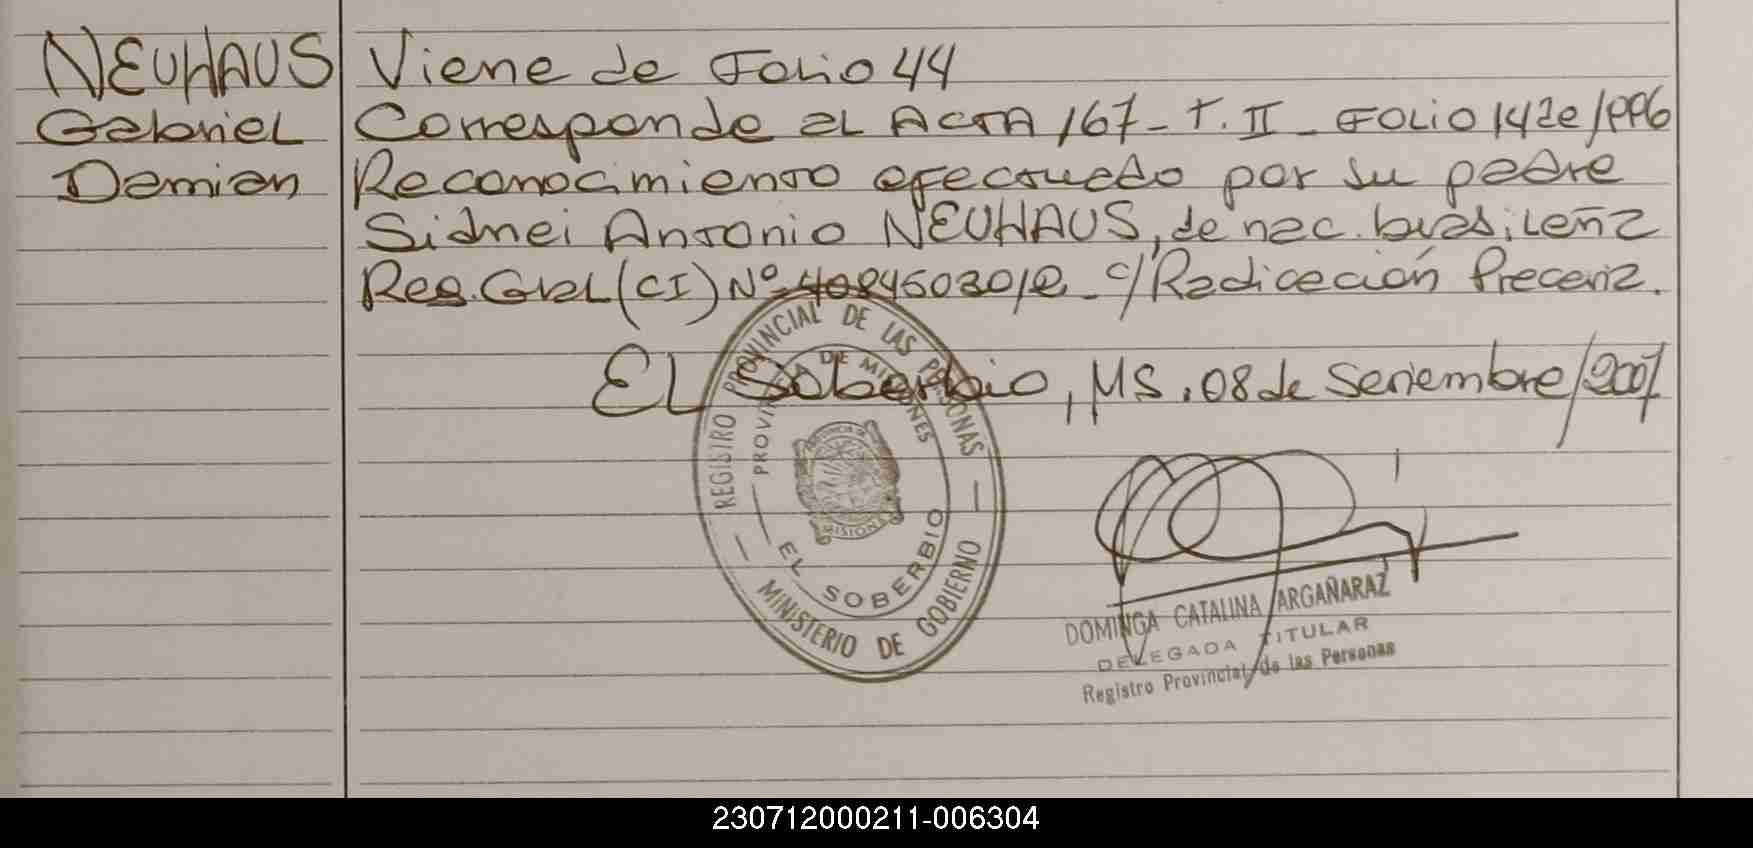 NEUHAUS
Gabriel
Damian
Viene de Folio 44
Corresponde al Acta 167 - T. II - Folio 142 e/1996
Reconocimiento efectuado por su padre
Sidnei Antonio NEUHAUS, de nac. brasileña
Reg. Gral (CI) Nº 4084503012 - c/Radicación Precaria.
El Soberbio, MS, 08 de Setiembre/2007
REGISTRO PROVINCIAL DE LAS PERSONAS
PROVINCIA DE MISIONES
MISIONES
EL SOBERBIO
MINISTERIO DE GOBIERNO
DOMINGA CATALINA ARGAÑARAZ
DELEGADA TITULAR
Registro Provincial de las Personas
230712000211-006304